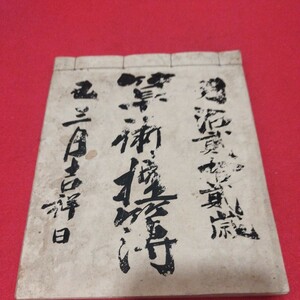 明治貳拾貳歳
算術控簿
丑三月吉祥日